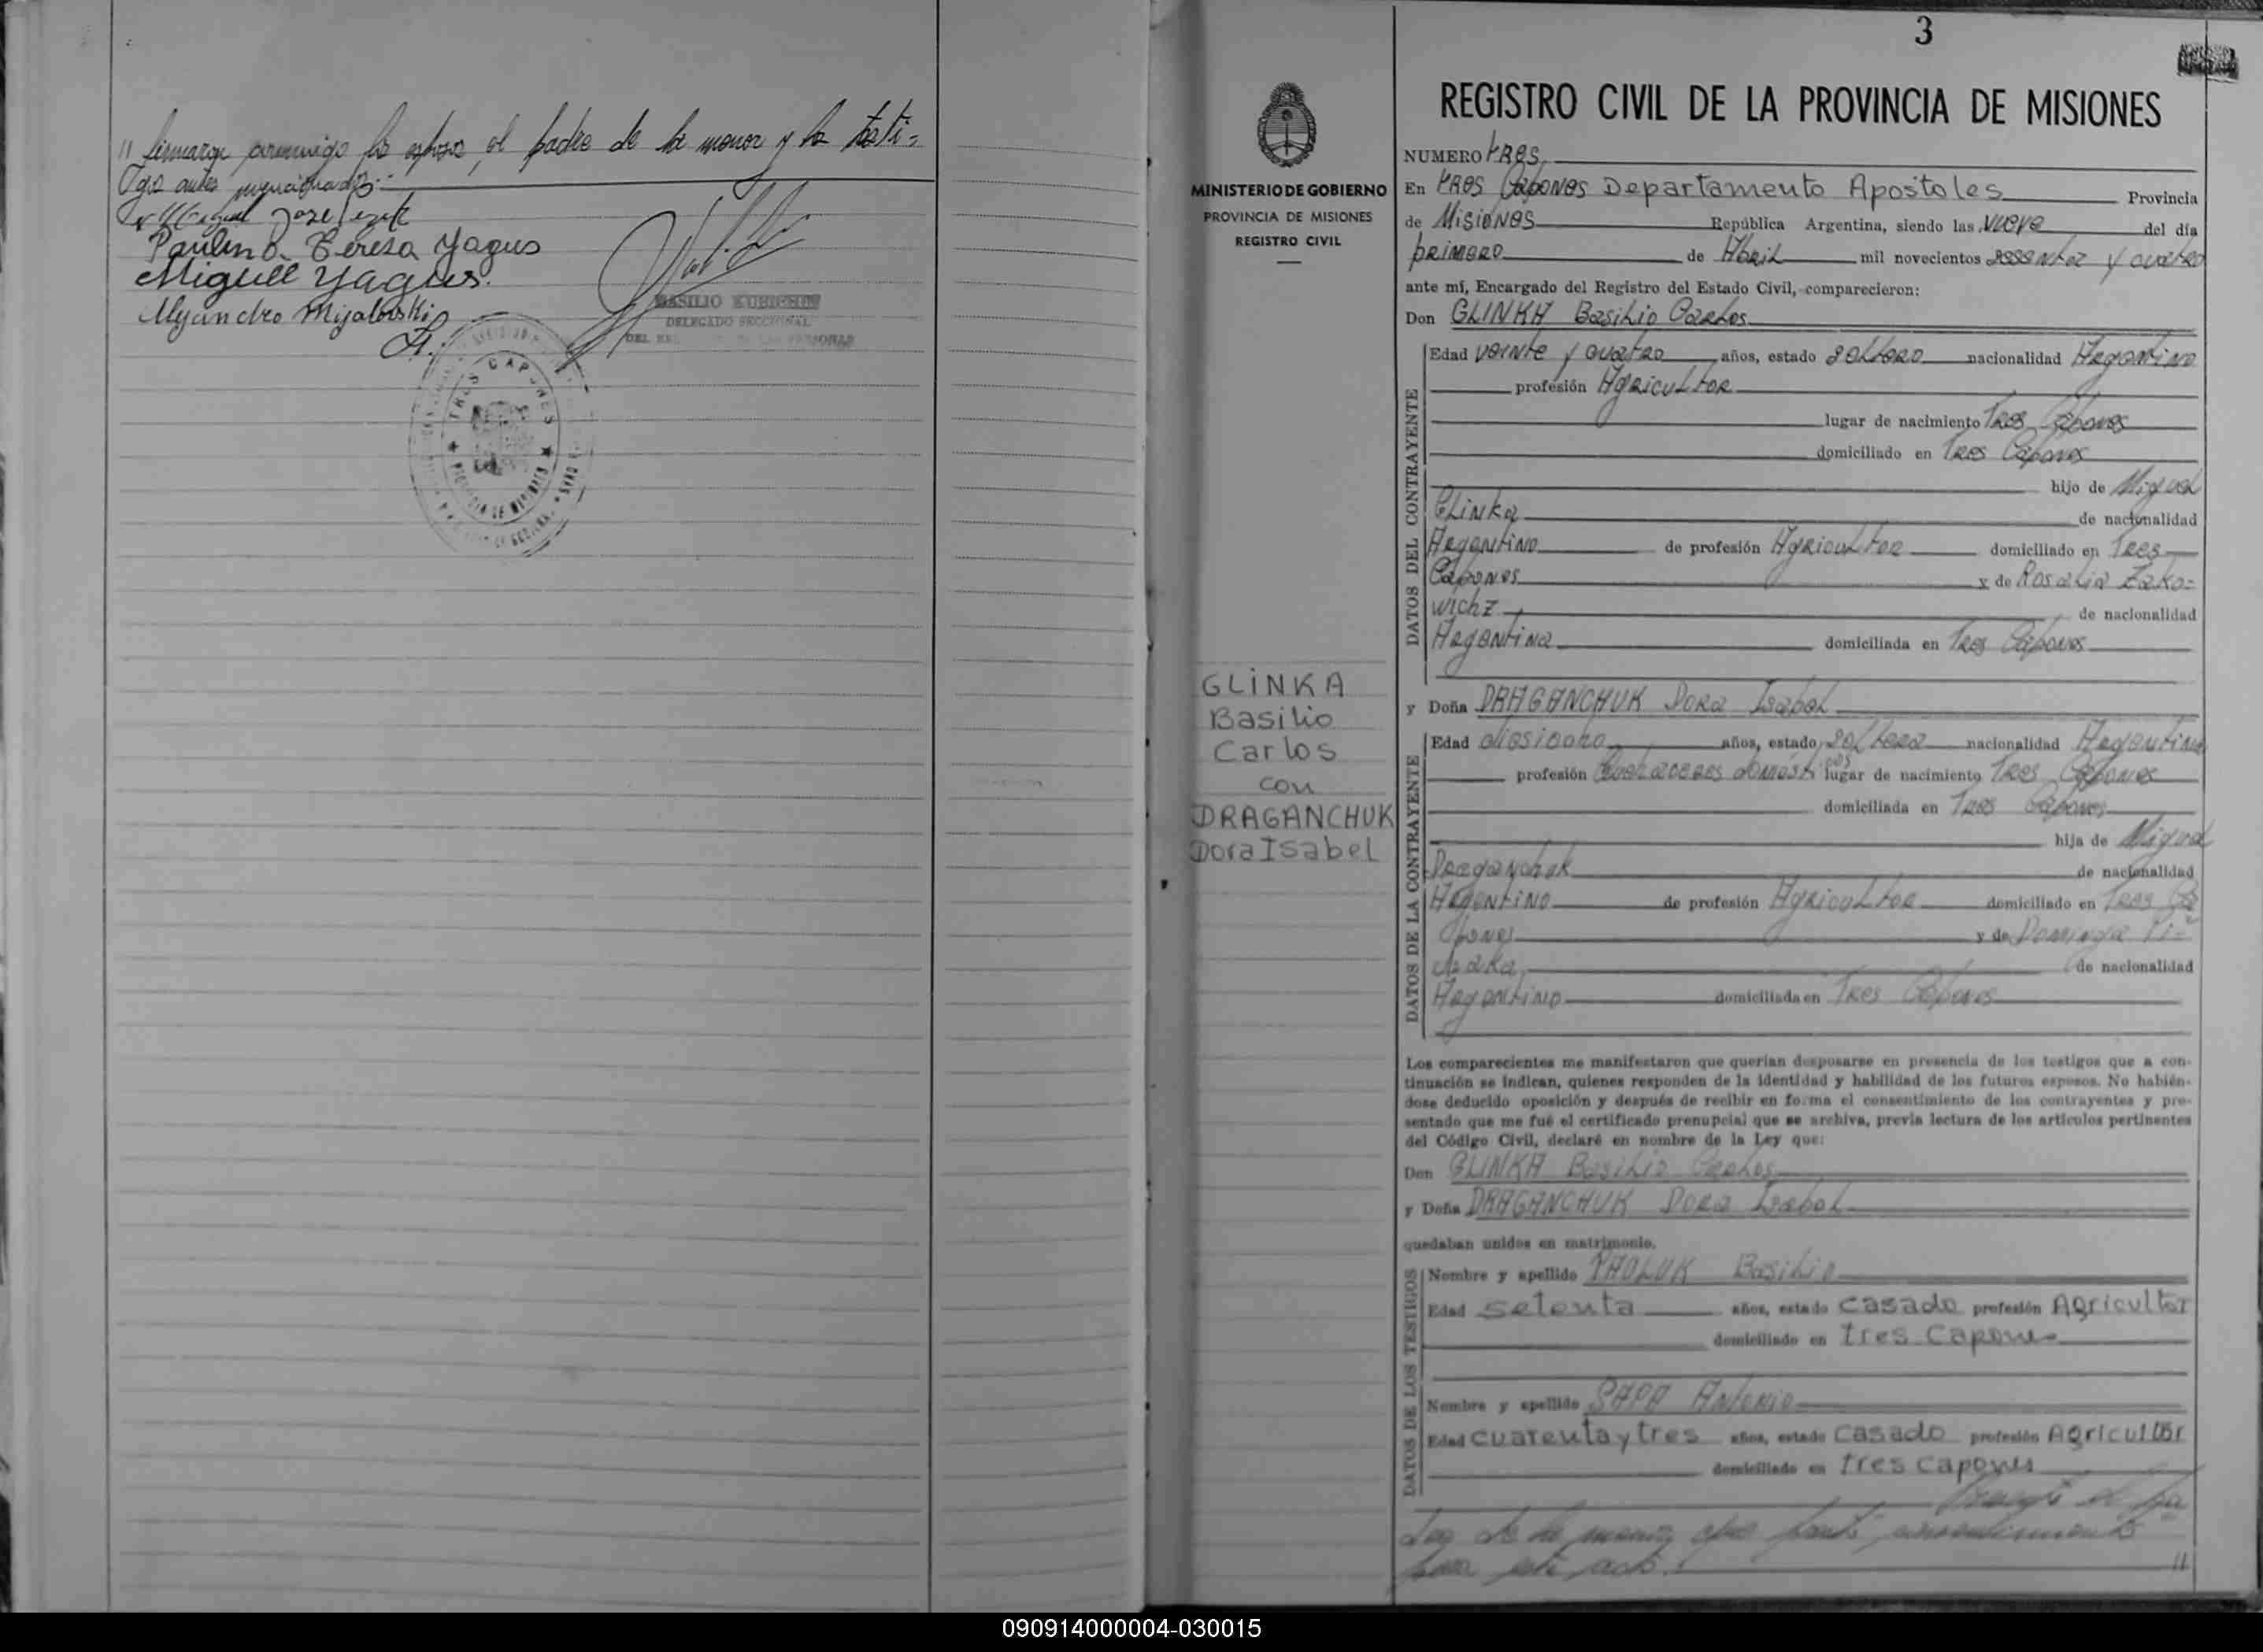 " firmaron conmigo los esposos, el padre de la menor y los testi=
gos antes mencionados.
Miguel José
Paulina Teresa Yagus
Miguel Yagus.
Alejandro Mijalowski
BASILIO
DELEGADO SECCIONAL
DEL DE LAS PERSONAS
TRES CAPONES
PROVINCIA DE MISIONES
3
MINISTERIO DE GOBIERNO
PROVINCIA DE MISIONES
REGISTRO CIVIL
GLINKA
Basilio
Carlos
con
DRAGANCHUK
Dora Isabel
REGISTRO CIVIL DE LA PROVINCIA DE MISIONES
NUMERO tres
En tres Capones Departamento Apostoles Provincia
de Misiones República Argentina, siendo las nueve del día
primero de Abril mil novecientos sesenta y cuatro
ante mí, Encargado del Registro del Estado Civil, comparecieron:
Don GLINKA Basilio Carlos
DATOS DEL CONTRAYENTE
Edad veinte y cuatro años, estado soltero nacionalidad Argentino
profesión Agricultor
lugar de nacimiento Tres Capones
domiciliado en Tres Capones
hijo de Miguel
Glinka de nacionalidad
Argentino de profesión Agricultor domiciliado en Tres
Capones y de Rosalia Zako=
wichz de nacionalidad
Argentina domiciliada en Tres Capones
y Doña DRAGANCHUK Dora Isabel
DATOS DE LA CONTRAYENTE
Edad diesiocho años, estado soltera nacionalidad Argentina
profesión Quehaceres domésticos lugar de nacimiento Tres Capones
domiciliada en Tres Capones
hija de Miguel
Draganchuk de nacionalidad
Argentino de profesión Agricultor domiciliado en Tres Ca
pones y de Dominga
de nacionalidad
Argentino domiciliada en Tres Capones
Los comparecientes me manifestaron que querían desposarse en presencia de los testigos que a con-
tinuación se indican, quienes responden de la identidad y habilidad de los futuros esposos. No habién-
dose deducido oposición y después de recibir en forma el consentimiento de los contrayentes y pre-
sentado que me fué el certificado prenupcial que se archiva, previa lectura de los artículos pertinentes
del Código Civil, declaré en nombre de la Ley que:
Don GLINKA Basilio Carlos
y Doña DRAGANCHUK Dora Isabel
quedaban unidos en matrimonio.
DATOS DE LOS TESTIGOS
Nombre y apellido PAOLUK Basilio
Edad setenta años, estado casado profesión Agricultor
domiciliado en tres Capones
Nombre y apellido SAPA Antonio
Edad cuarenta y tres años, estado casado profesión Agricultor
domiciliado en tres capones
Presente el pa
dre de la menor consentimiento
para este acto. "
090914000004-030015